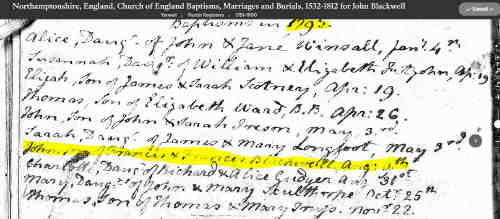 Northamptonshire, England, Church of England Baptisms, Marriages and Burials, 1532-1812 for John Blackwell
Yarwell Parish Registers 1781-1800
Saved
Baptisms in 179
Alice, Daugr. of John & Jane Winsall, Jany. 4th
Susannah, Daugr. of William & Elizabeth Fitzjohn, Ap: 19
Elijah, Son of James & Sarah Scotney, Apr: 19.
Thomas, Son of Elizabeth Ward, B.B. Apr: 26.
John, Son of John & Sarah Ireson, May 3rd.
Sarah, Daugr. of James & Mary Longfoot, May 3rd
John Son of & Frances Blackwell Aug:
Charlotte, Daugr. of Richard & Alice Aug 31st
Mary, Daugr. of John & Mary Sculthorpe Octr. 25th
Thomas, Son of Thomas & Mary Novr. 22.